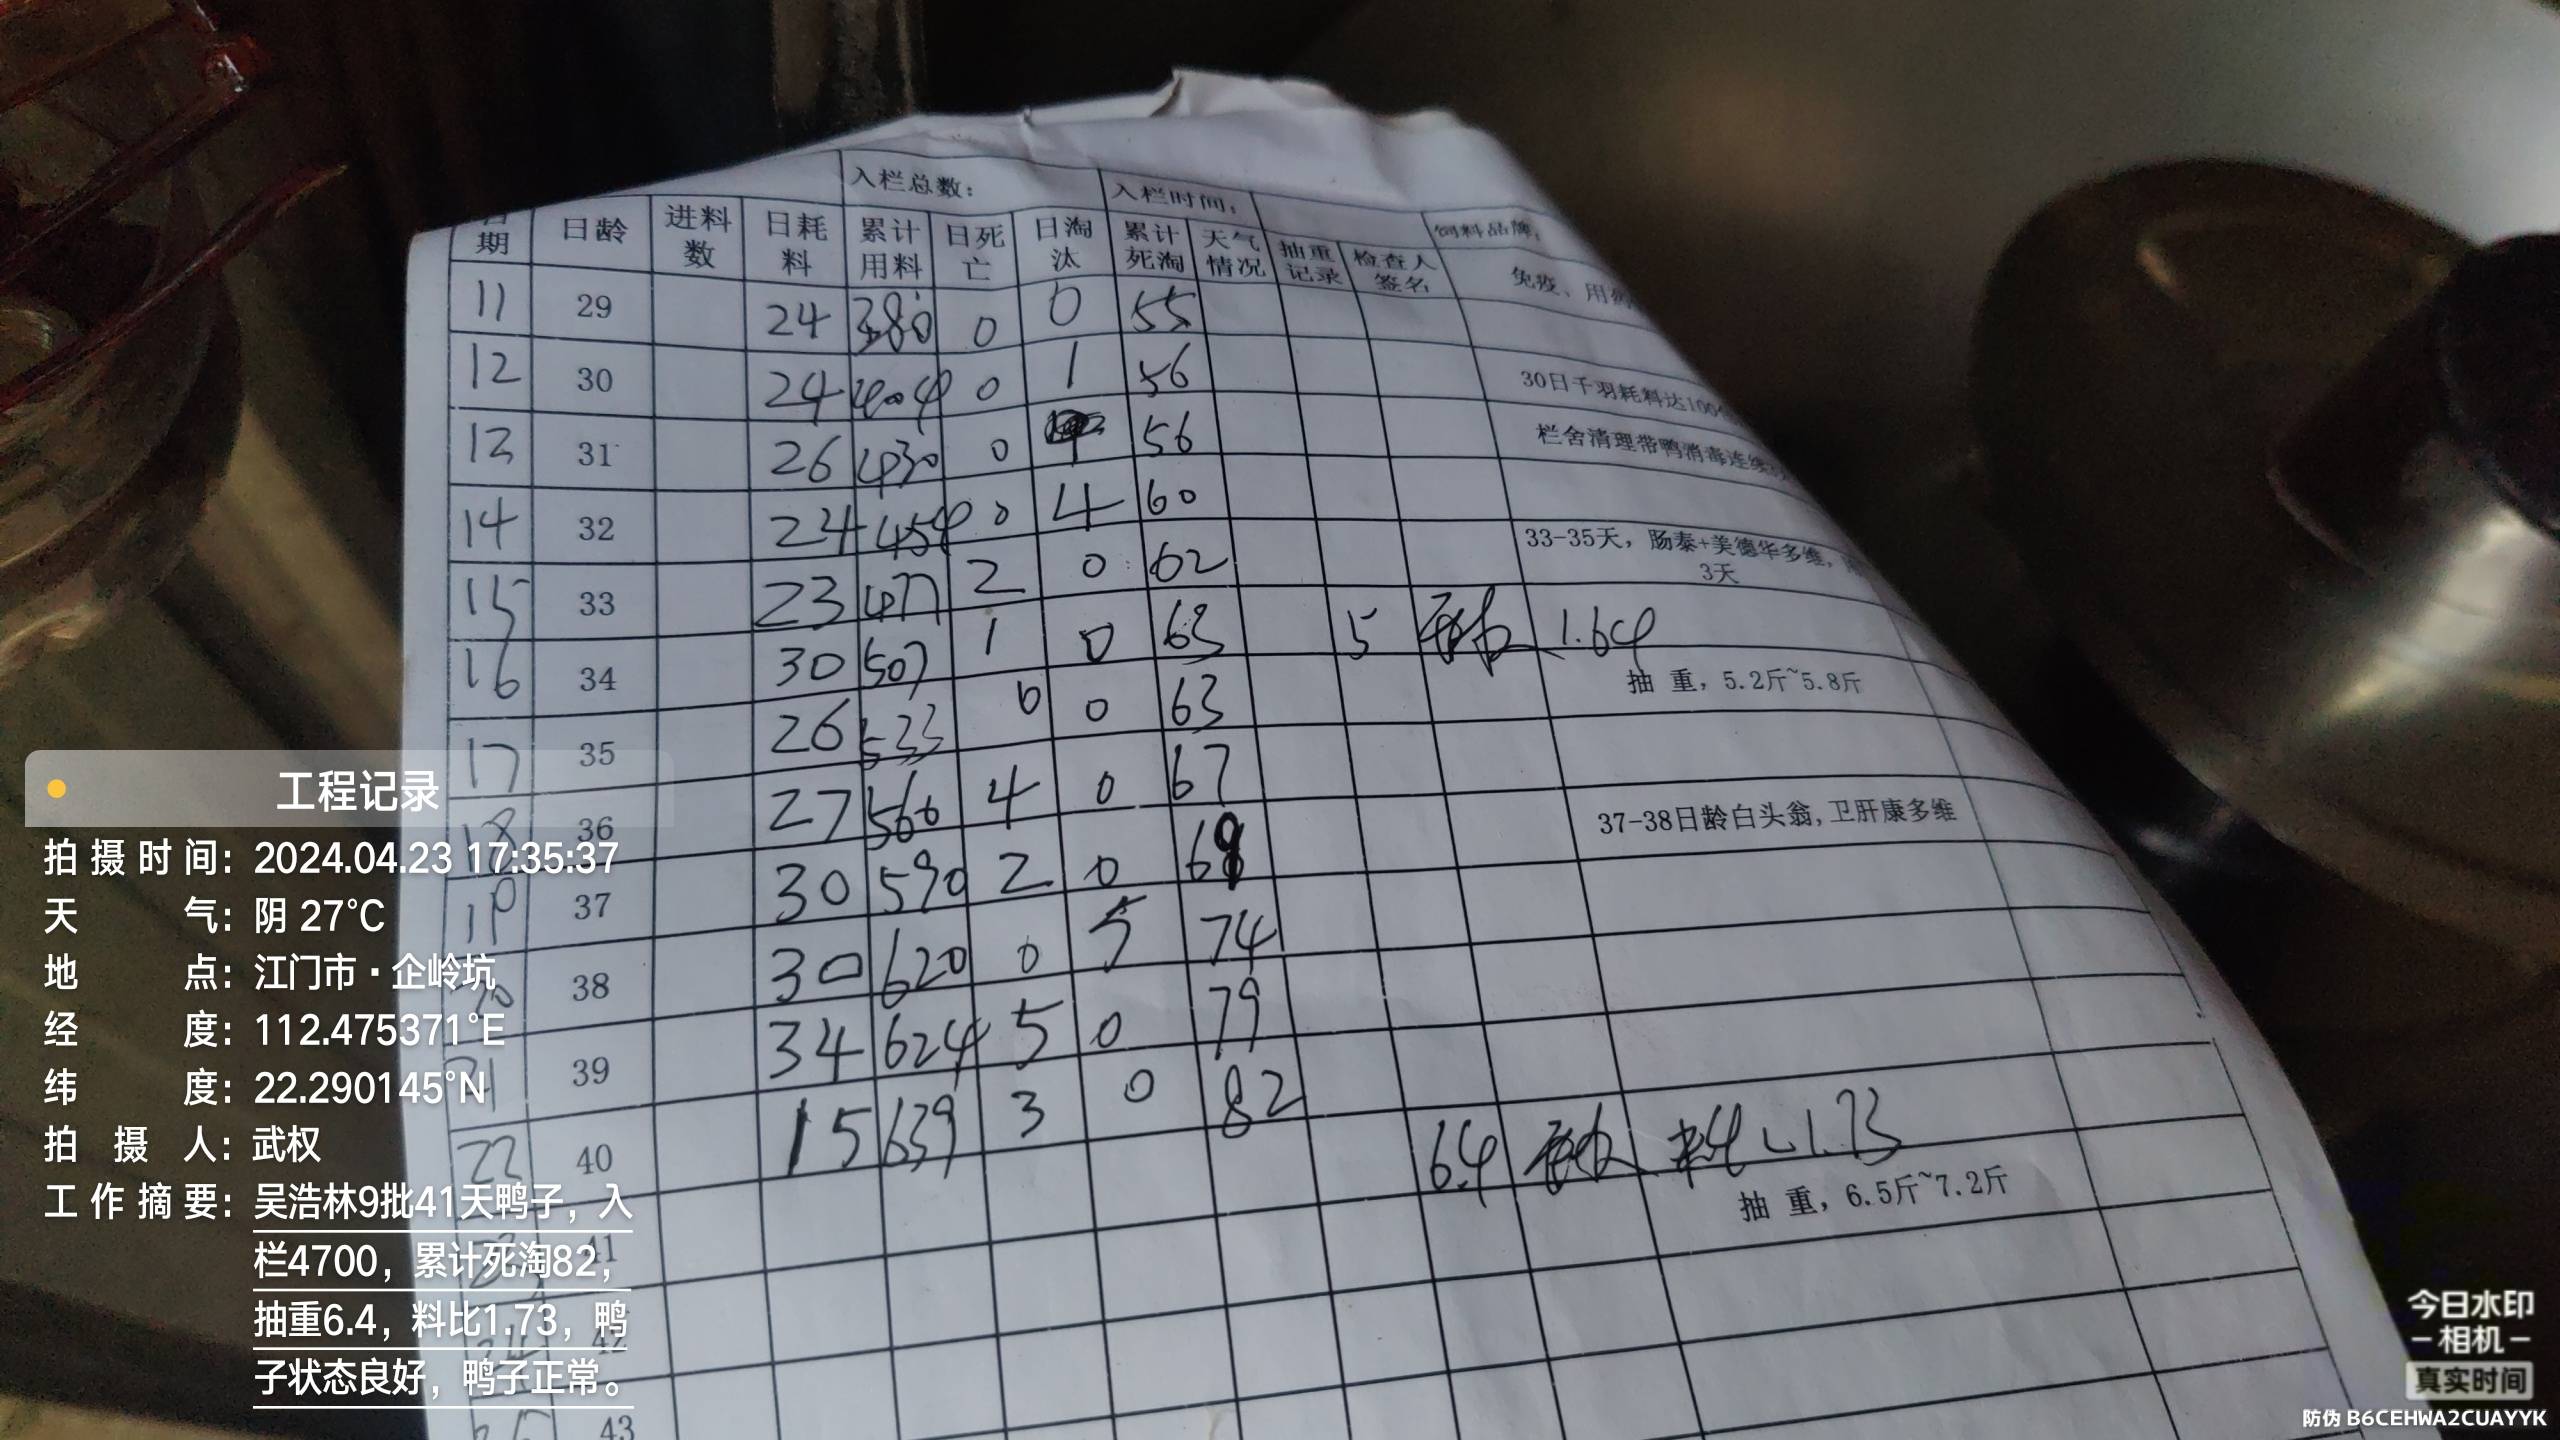 入栏总数： 入栏时间： 饲料品牌：
日期 日龄 进料数 日耗料 累计用料 日死亡 日淘汰 累计死淘 天气情况 抽重记录 检查人签名 免疫、用
11 29 24 380 0 0 55
12 30 24 404 0 1 56 30日千羽耗料达100
13 31 26 430 0 56 栏舍清理带鸭消毒连续
14 32 24 454 0 4 60
15 33 23 477 2 0 62 33-35天，肠泰+美德华多维，
3天
16 34 30 507 1 0 63 5 1.64
17 35 26 533 0 0 63 抽 重，5.2斤~5.8斤
18 36 27 560 4 0 67
19 37 30 590 2 0 69 37-38日龄白头翁,卫肝康多维
20 38 30 620 0 5 74
21 39 34 624 5 0 79
22 40 15 639 3 0 82 6.4 料比1.73
抽 重，6.5斤~7.2斤
41
42
43
工程记录
拍摄时间：2024.04.23 17:35:37
天气：阴 27°C
地点：江门市·企岭坑
经度：112.475371°E
纬度：22.290145°N
拍摄人：武权
工作摘要：吴浩林9批41天鸭子，入
栏4700，累计死淘82，
抽重6.4，料比1.73，鸭
子状态良好，鸭子正常。
今日水印
-相机-
真实时间
防伪 B6CEHWA2CUAYYK